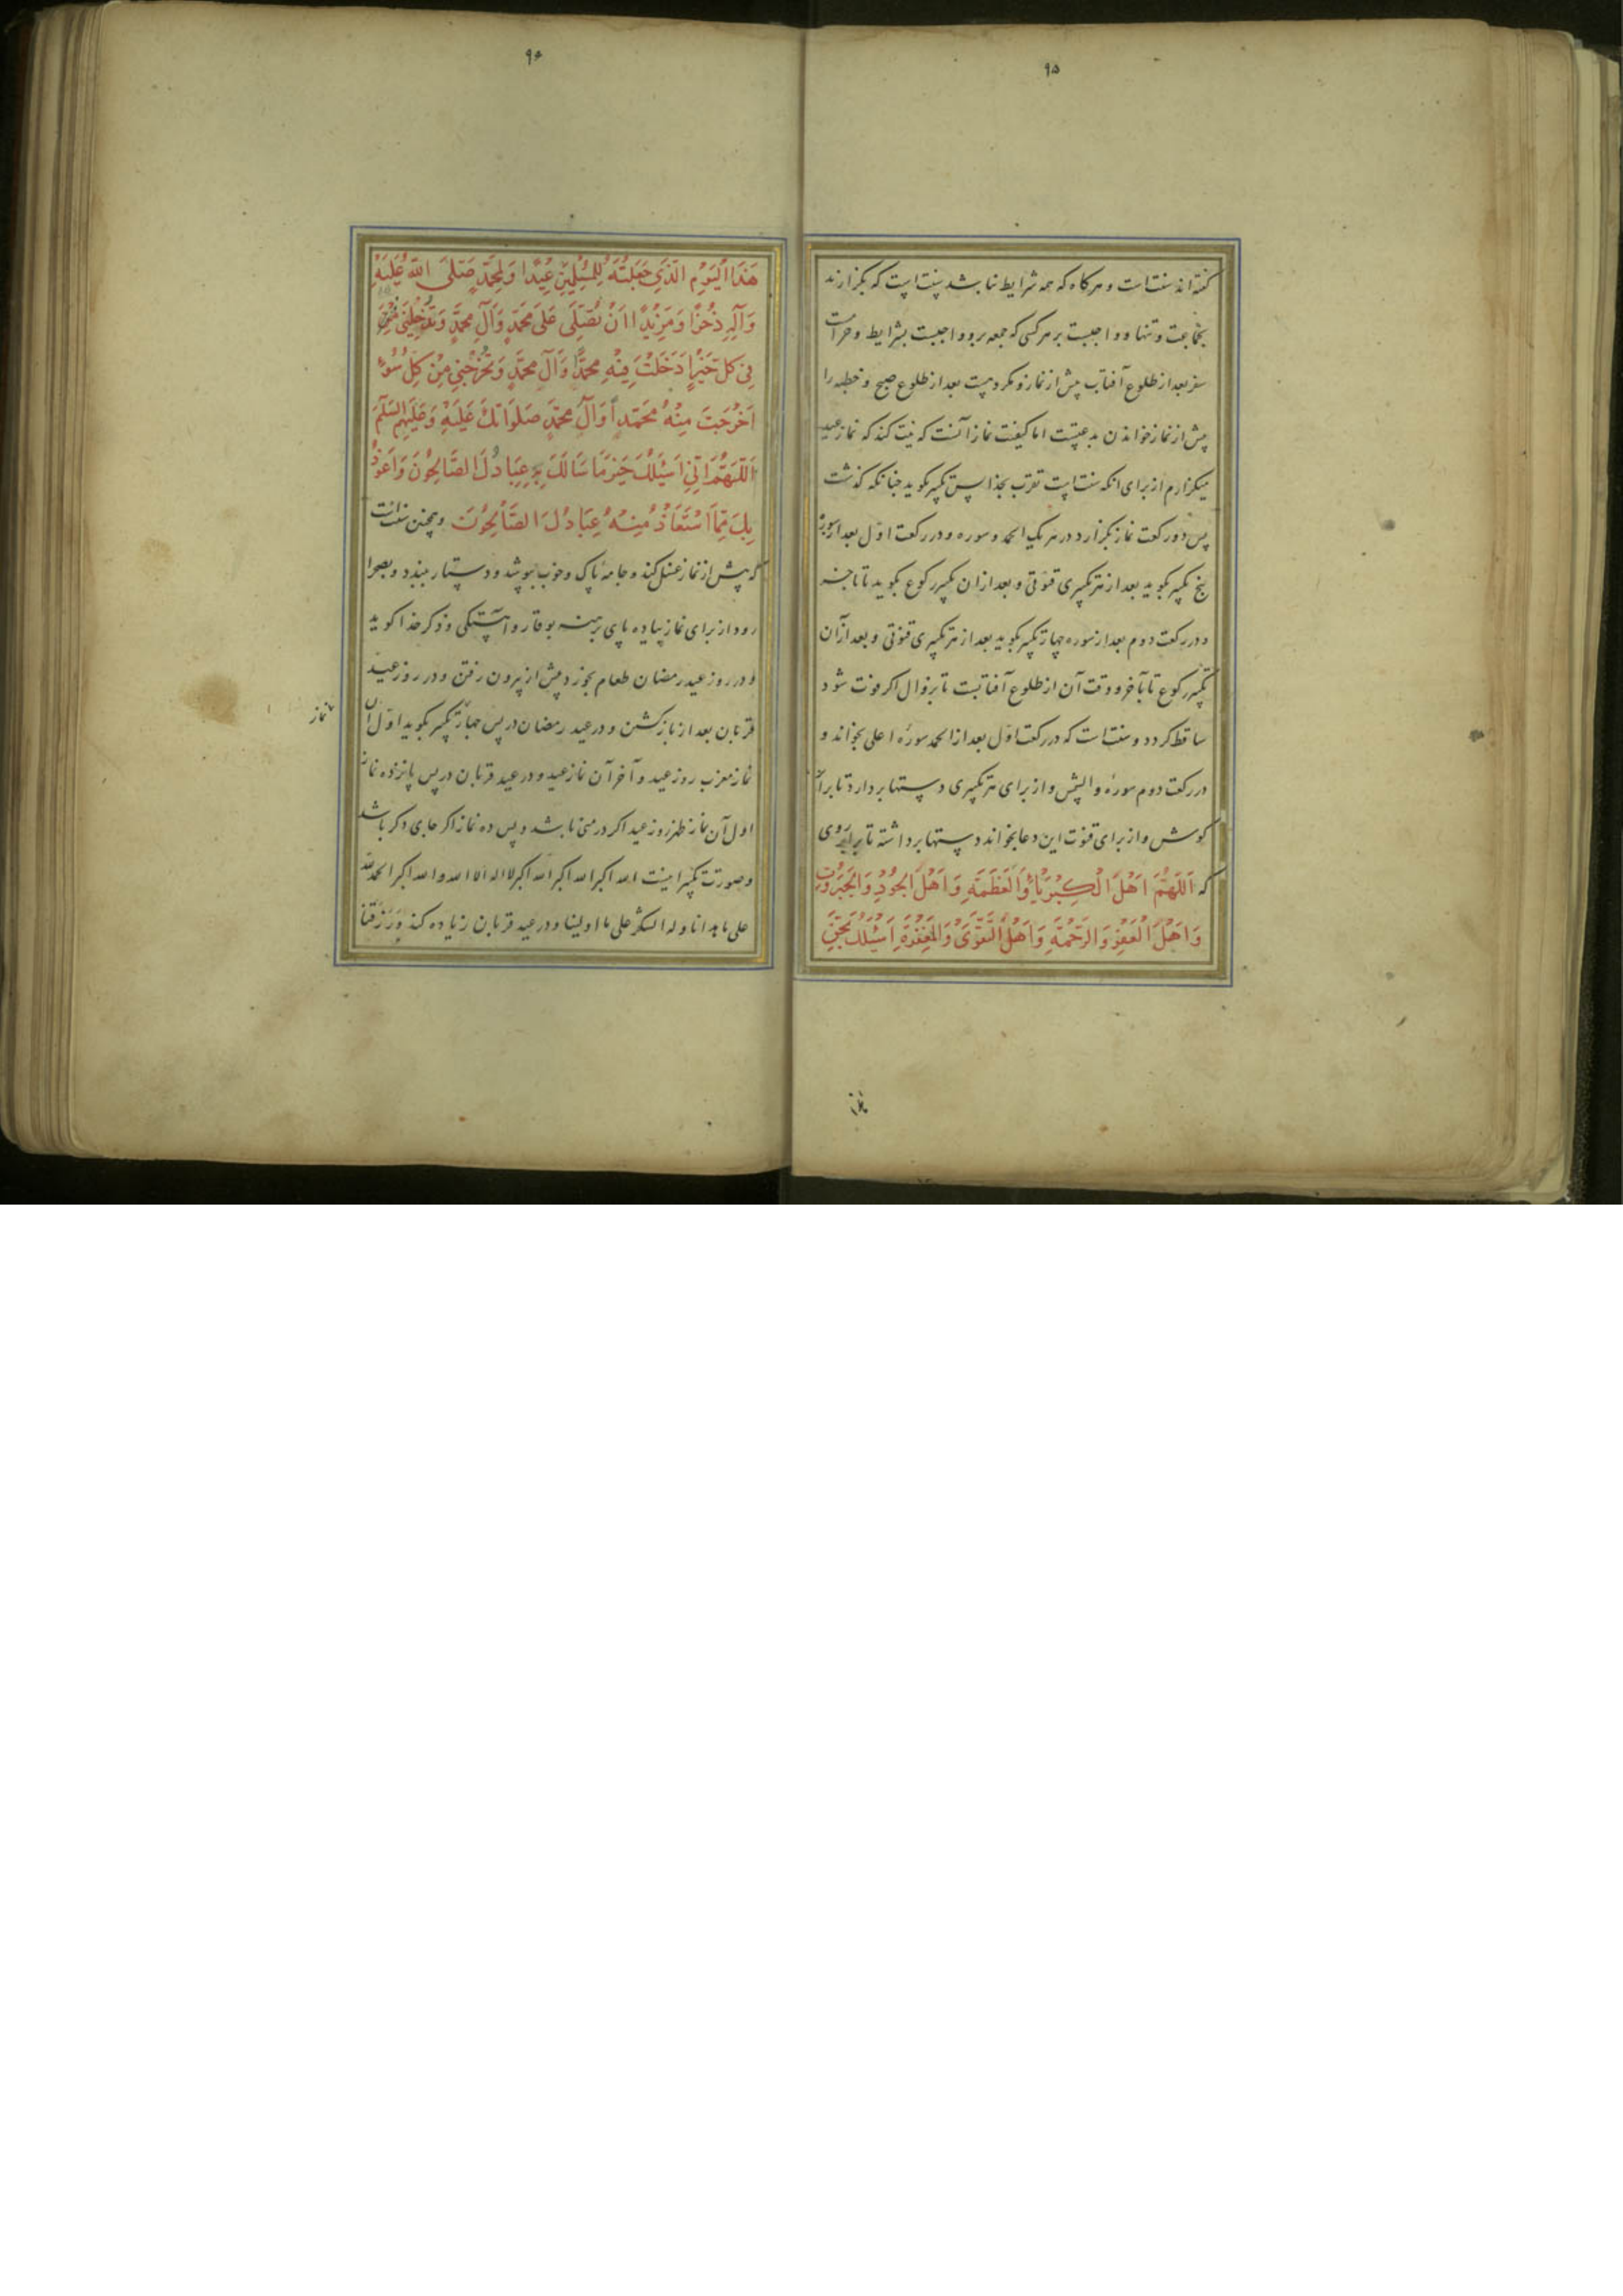 ۹۵
گفته‌اند سنت است و هرکاه که همه شرایط نباشد سنت است که بکزارند
بجماعت و تنها و واجبست بر هر کسی که جمعه برو واجبست بشرایط و حرامست
سفر بعد از طلوع آفتاب پیش از نماز و مکروهست بعد از طلوع صبح و خطبه را
پیش از نماز خواندن بدعتست اما کیفیت نماز آنست که نیت کند که نماز عید
میکزارم از برای انکه سنت است تقرب بخدا پس تکبیر بکوید چنانکه کذشت
پس دو رکعت نماز بکزارد در هر یک الحمد و سوره و در رکعت اول بعد از سوره
پنج تکبیر بکوید بعد از هر تکبیری قنوتی و بعد از ان تکبیر رکوع بکوید تا باخر
و در رکعت دوم بعد از سوره چهار تکبیر بکوید بعد از هر تکبیری قنوتی و بعد از آن
تکبیر رکوع تا بآخر و وقت آن از طلوع آفتابست تا بزوال اکر فوت شود
ساقط کردد و سنت است که در رکعت اول بعد از الحمد سورهٔ اعلی بخواند و
در رکعت دوم سورهٔ والشمس و از برای هر تکبیری دستها بردارد تا برابر
کوش و از برای قنوت این دعا بخواند دستها برداشته تا برابر روی
که اَللّهُمَّ اَهْلَ الْكِبْرِيَاءِ وَالْعَظَمَةِ وَاَهْلَ الْجُودِ وَالْجَبَرُوتِ
وَاَهْلَ الْعَفْوِ وَالرَّحْمَةِ وَاَهْلَ التَّقْوَى وَالْمَغْفِرَةِ اَسْئَلُكَ بِحَقِّ
۹۶
هَذَا الْيَوْمِ الَّذِي جَعَلْتَهُ لِلْمُسْلِمِينَ عِيدًا وَلِمُحَمَّدٍ صَلَّى اللّهُ عَلَيْهِ
وَآلِهِ ذُخْرًا وَمَزِيدًا اَنْ تُصَلِّيَ عَلَى مُحَمَّدٍ وَآلِ مُحَمَّدٍ وَتُدْخِلَنِي
فِي كُلِّ خَيْرٍ اَدْخَلْتَ فِيهِ مُحَمَّدًا وَآلَ مُحَمَّدٍ وَتُخْرِجَنِي مِنْ كُلِّ سُوءٍ
اَخْرَجْتَ مِنْهُ مُحَمَّدًا وَآلَ مُحَمَّدٍ صَلَوَاتُكَ عَلَيْهِ وَعَلَيْهِمُ السَّلَمُ
اَللّهُمَّ اِنِّي اَسْئَلُكَ خَيْرَ مَا سَالَكَ بِهِ عِبَادُكَ الصَّالِحُونَ وَاَعُوذُ
بِكَ مِمَّا اسْتَعَاذَ مِنْهُ عِبَادُكَ الصَّالِحُونَ وهمچنین سنت است
که پیش از نماز غسل کند و جامهٔ پاک و خوب بپوشد و دستار ببندد و بصحرا
رود از برای نماز پیاده پای برهنه بوقار و آهستکی و ذکر خدا کوید
و در روز عید رمضان طعام بخورد پیش از بیرون رفتن و در روز عید
قربان بعد از بازکشتن و در عید رمضان در پس چهار تکبیر بکوید اول آن
نماز
نماز مغرب روز عید و آخر آن نماز عید و در عید قربان در پس پانزده نماز
اول آن نماز ظهر روز عید اکر در منی باشد و پس ده نماز اکر جای دکر باشد
و صورت تکبیر اینست الله اکبر الله اکبر الله اکبر لا اله الا الله والله اکبر الحمد لله
علی ما هدانا وله الشکر علی ما اولینا و در عید قربان زیاده کند وَرَزَقَنَا